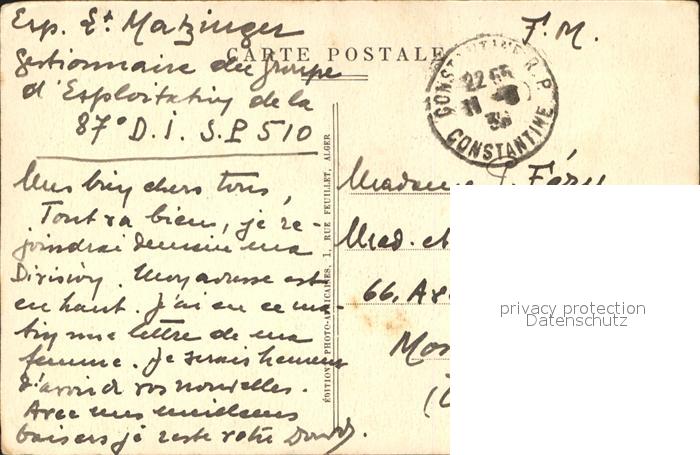 Exp. Lt Matzinger
F.M.
CARTE POSTALE
gestionnaire du groupe
d'Exploitation de la
87e D.I. S.P. 510
CONSTANTINE R.P.
22
CONSTANTINE
Mes bien chers tous,
Tout va bien, je re-
joindrai demain ma
Division. Mon adresse est
en haut. J'ai eu ce ma-
tin une lettre de ma
femme. Je serais heureux
d'avoir de vos nouvelles.
Avec mes meilleurs
baisers je reste votre
ÉDITION PHOTO-AFRICAINES, 1, RUE FEUILLET, ALGER
Madame
Mad. et
66, 
privacy protection
Datenschutz